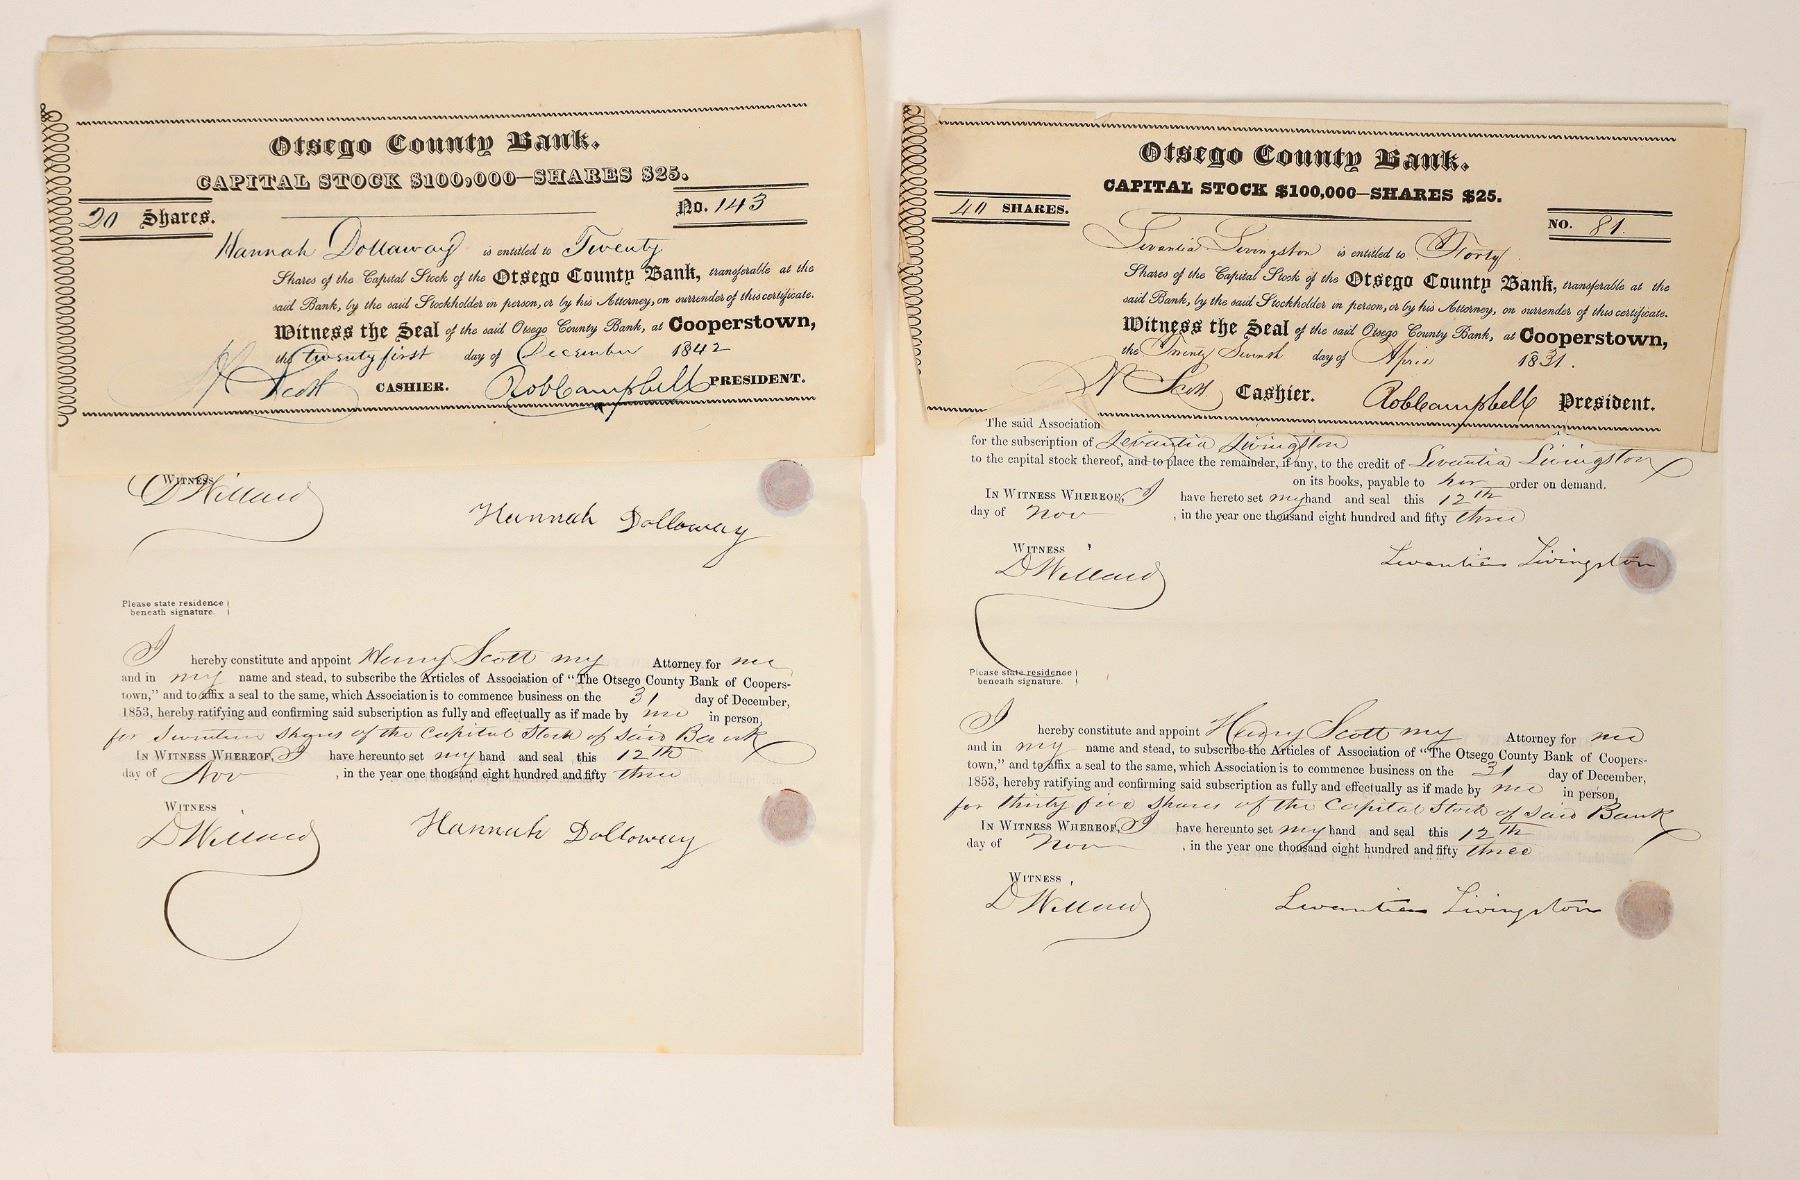 Otsego County Bank.
CAPITAL STOCK $100,000—SHARES $25.
20 Shares.
No. 143
Hannah Dollaway is entitled to Twenty
Shares of the Capital Stock of the Otsego County Bank, transferable at the
said Bank, by the said Stockholder in person, or by his Attorney, on surrender of this certificate.
Witness the Seal of the said Otsego County Bank, at Cooperstown,
the twenty first day of December 1842
H Scott CASHIER. Rob Campbell PRESIDENT.
WITNESS
D Willard
Hannah Dolloway
Please state residence
beneath signature.
I hereby constitute and appoint Henry Scott my Attorney for me
and in my name and stead, to subscribe the Articles of Association of "The Otsego County Bank of Coopers-
town," and to affix a seal to the same, which Association is to commence business on the 31 day of December,
1853, hereby ratifying and confirming said subscription as fully and effectually as if made by me in person,
for Seventeen shares of the Capital Stock of said Bank
IN WITNESS WHEREOF, I have hereunto set my hand and seal this 12th
day of Nov , in the year one thousand eight hundred and fifty three
WITNESS
D Willard
Hannah Dolloway
Otsego County Bank.
CAPITAL STOCK $100,000—SHARES $25.
40 SHARES.
NO. 81.
Levantia Livingston is entitled to Forty
Shares of the Capital Stock of the Otsego County Bank, transferable at the
said Bank, by the said Stockholder in person, or by his Attorney, on surrender of this certificate.
Witness the Seal of the said Otsego County Bank, at Cooperstown,
the Twenty Seventh day of April 1831.
H Scott Cashier. Rob Campbell President.
The said Association
for the subscription of Levantia Livingston
to the capital stock thereof, and to place the remainder, if any, to the credit of Levantia Livingston
on its books, payable to her order on demand.
IN WITNESS WHEREOF, I have hereto set my hand and seal this 12th
day of Nov , in the year one thousand eight hundred and fifty three
WITNESS
D Willard
Levantia Livingston
Please state residence
beneath signature.
I hereby constitute and appoint Henry Scott my Attorney for me
and in my name and stead, to subscribe the Articles of Association of "The Otsego County Bank of Coopers-
town," and to affix a seal to the same, which Association is to commence business on the 31 day of December,
1853, hereby ratifying and confirming said subscription as fully and effectually as if made by me in person,
for thirty five shares of the Capital Stock of said Bank
IN WITNESS WHEREOF, I have hereunto set my hand and seal this 12th
day of Nov , in the year one thousand eight hundred and fifty three
WITNESS
D Willard
Levantia Livingston